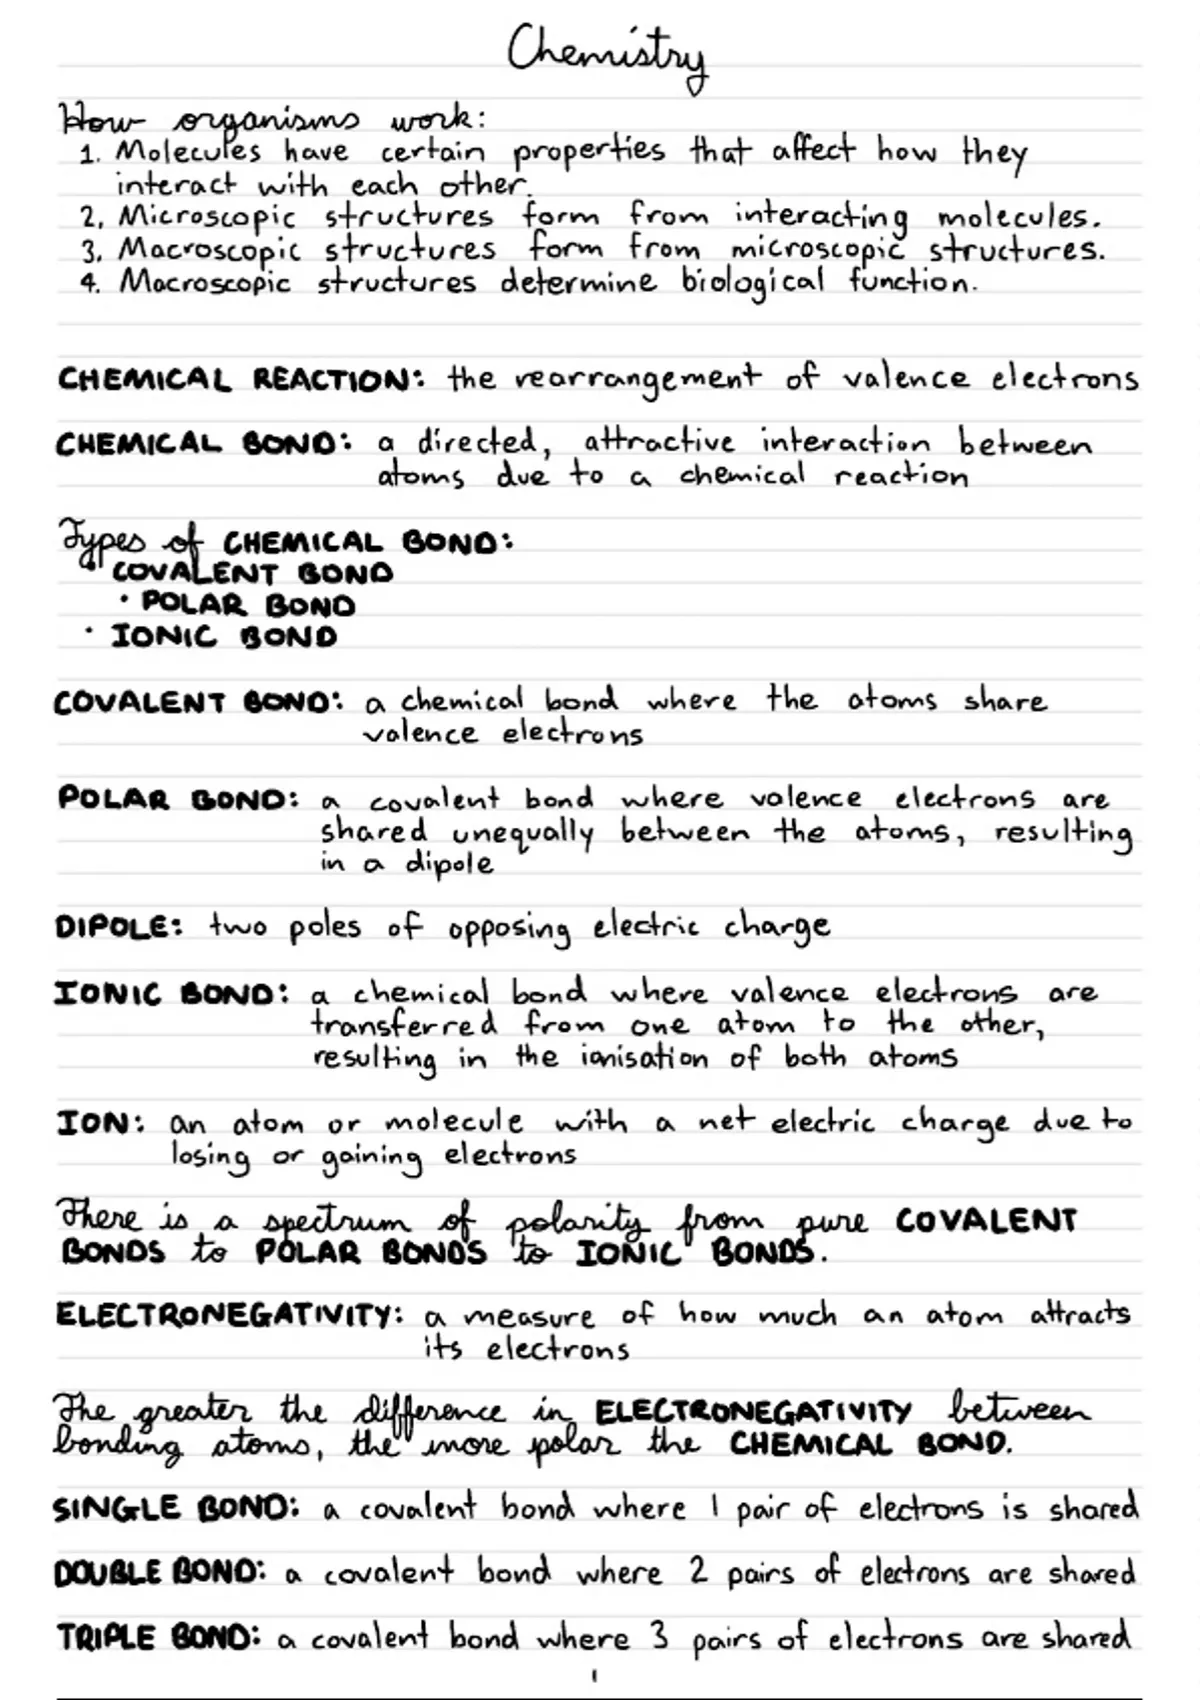 Chemistry
How organisms work:
1. Molecules have certain properties that affect how they
interact with each other.
2. Microscopic structures form from interacting molecules.
3. Macroscopic structures form from microscopic structures.
4. Macroscopic structures determine biological function.
CHEMICAL REACTION: the rearrangement of valence electrons
CHEMICAL BOND: a directed, attractive interaction between
atoms due to a chemical reaction
Types of CHEMICAL BOND:
• COVALENT BOND
• POLAR BOND
• IONIC BOND
COVALENT BOND: a chemical bond where the atoms share
valence electrons
POLAR BOND: a covalent bond where valence electrons are
shared unequally between the atoms, resulting
in a dipole
DIPOLE: two poles of opposing electric charge
IONIC BOND: a chemical bond where valence electrons are
transferred from one atom to the other,
resulting in the ionisation of both atoms
ION: an atom or molecule with a net electric charge due to
losing or gaining electrons
There is a spectrum of polarity from pure COVALENT
BONDS to POLAR BONDS to IONIC BONDS.
ELECTRONEGATIVITY: a measure of how much an atom attracts
its electrons
The greater the difference in ELECTRONEGATIVITY between
bonding atoms, the more polar the CHEMICAL BOND.
SINGLE BOND: a covalent bond where 1 pair of electrons is shared
DOUBLE BOND: a covalent bond where 2 pairs of electrons are shared
TRIPLE BOND: a covalent bond where 3 pairs of electrons are shared
1